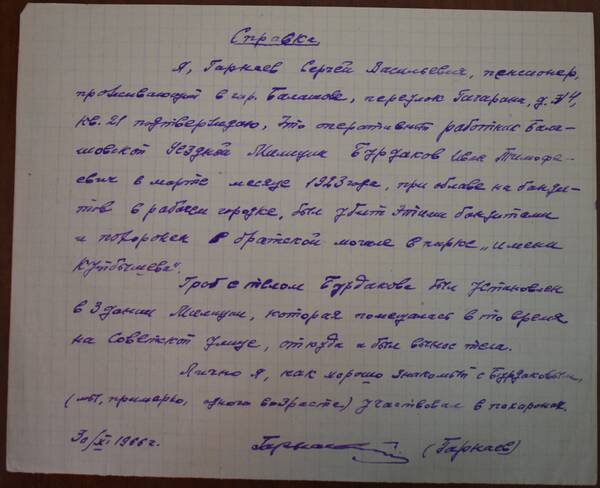 Справка.
Я, Гарнаев Сергей Васильевич, пенсионер,
проживающий в гор. Балашове, переулок Гагарина, д. №4,
кв. 21 подтверждаю, что оперативный работник Бала-
шовской Уездной Милиции Бурдаков Иван Тимофе-
евич в марте месяце 1923 года, при облаве на банди-
тов в рабочем городке, был убит этими бандитами
и похоронен в братской могиле в парке „имени
Куйбышева".
Гроб с телом Бурдакова был установлен
в здании Милиции, которая помещалась в то время
на Советской улице, откуда и был вынос тела.
Лично я, как хорошо знакомый с Бурдаковым,
(мы, примерно, одного возраста) участвовал в похоронах.
30/XI 1966 г.
(Гарнаев)